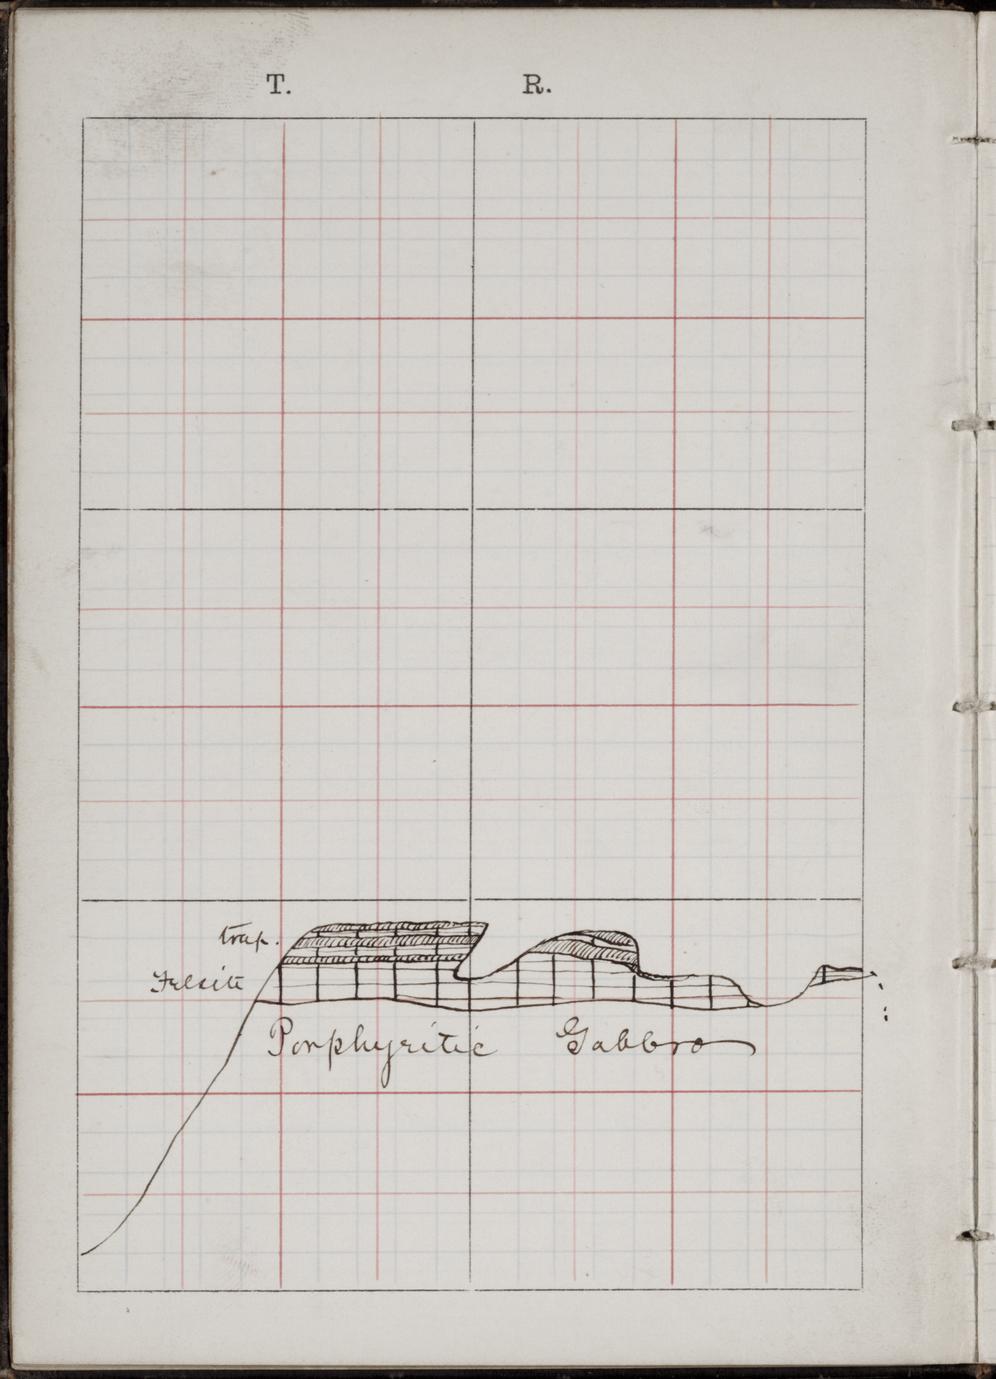 T. R.
trap.
Felsite
Porphyritic Gabbro